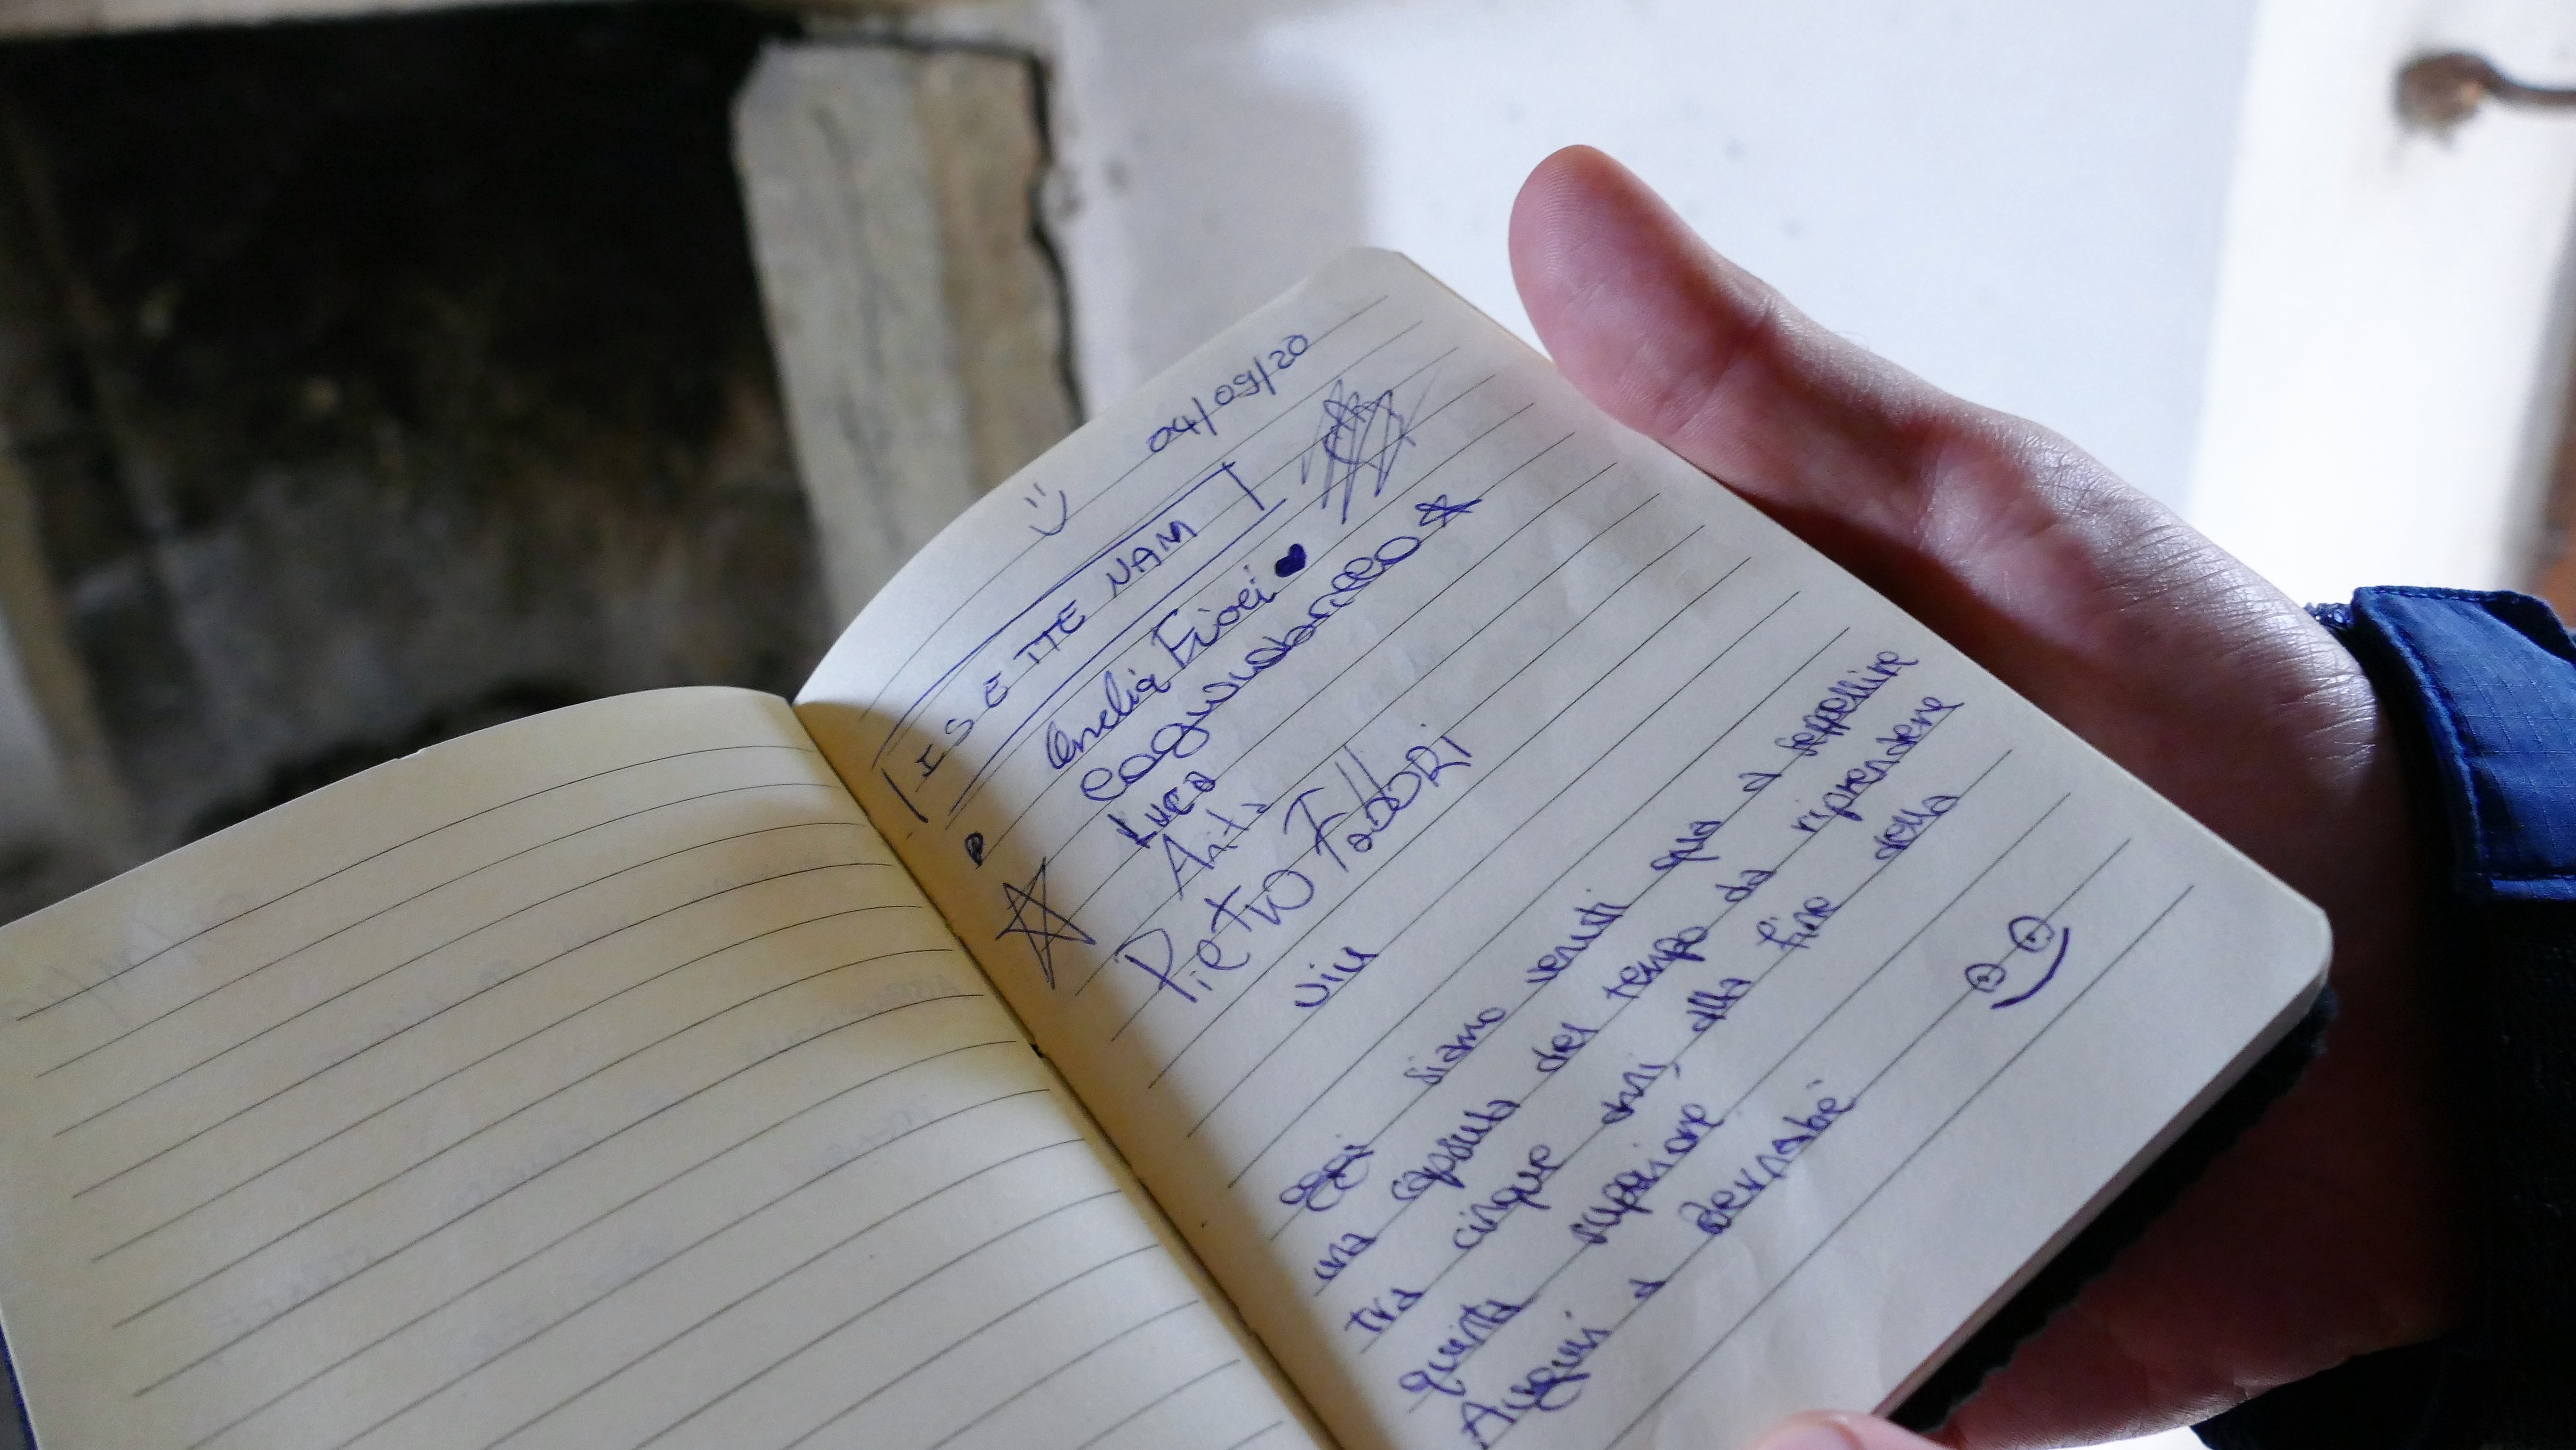 04/09/20
I SETTE NAM
Fiori
Luca
Anita
Pietro Fabbri
Viu
Oggi siamo venuti qua a seppellire
una capsula del tempo da riprendere
tra cinque anni, alla fine della
quinta superiore
Auguri a Bernabé